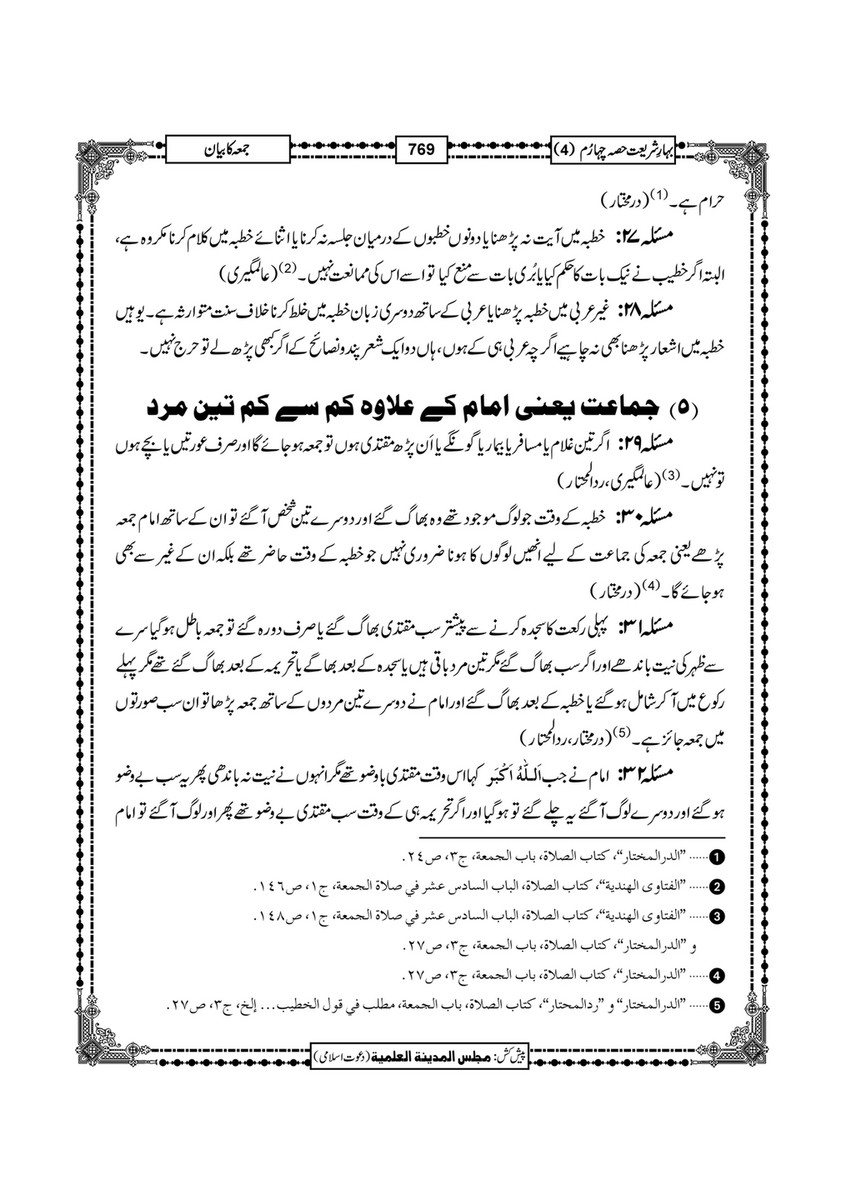 بہارِ شریعت حصہ چہارم (4)
769
جمعہ کا بیان
حرام ہے۔ (1) (درمختار)
مسئلہ ۲۷: خطبہ میں آیت نہ پڑھنا یا دونوں خطبوں کے درمیان جلسہ نہ کرنا یا اثنائے خطبہ میں کلام کرنا مکروہ ہے،
البتہ اگر خطیب نے نیک بات کا حکم کیا یا بُری بات سے منع کیا تو اسے اس کی ممانعت نہیں۔ (2) (عالمگیری)
مسئلہ ۲۸: غیر عربی میں خطبہ پڑھنا یا عربی کے ساتھ دوسری زبان خطبہ میں خلط کرنا خلاف سنت متوارثہ ہے۔ یوہیں
خطبہ میں اشعار پڑھنا بھی نہ چاہیے اگرچہ عربی ہی کے ہوں، ہاں دو ایک شعر پندونصائح کے اگر کبھی پڑھ لے تو حرج نہیں۔
(۵) جماعت یعنی امام کے علاوہ کم سے کم تین مرد
مسئلہ ۲۹: اگر تین غلام یا مسافر یا بیمار یا گونگے یا اَن پڑھ مقتدی ہوں تو جمعہ ہو جائے گا اور صرف عورتیں یا بچے ہوں
تو نہیں۔ (3) (عالمگیری، ردالمحتار)
مسئلہ ۳۰: خطبہ کے وقت جو لوگ موجود تھے وہ بھاگ گئے اور دوسرے تین شخص آ گئے تو ان کے ساتھ امام جمعہ
پڑھے یعنی جمعہ کی جماعت کے لیے انھیں لوگوں کا ہونا ضروری نہیں جو خطبہ کے وقت حاضر تھے بلکہ ان کے غیر سے بھی
ہو جائے گا۔ (4) (درمختار)
مسئلہ ۳۱: پہلی رکعت کا سجدہ کرنے سے پیشتر سب مقتدی بھاگ گئے یا صرف دو رہ گئے تو جمعہ باطل ہوگیا سرے
سے ظہر کی نیت باندھے اور اگر سب بھاگ گئے مگر تین مرد باقی ہیں یا سجدہ کے بعد بھاگے یا تحریمہ کے بعد بھاگ گئے تھے مگر پہلے
رکوع میں آکر شامل ہوگئے یا خطبہ کے بعد بھاگ گئے اور امام نے دوسرے تین مردوں کے ساتھ جمعہ پڑھا تو ان سب صورتوں
میں جمعہ جائز ہے۔ (5) (درمختار، ردالمحتار)
مسئلہ ۳۲: امام نے جب اَللّٰہُ اَکْبَر کہا اس وقت مقتدی باوضو تھے مگر انہوں نے نیت نہ باندھی پھر یہ سب بے وضو
ہوگئے اور دوسرے لوگ آگئے یہ چلے گئے تو ہوگیا اور اگر تحریمہ ہی کے وقت سب مقتدی بے وضو تھے پھر اور لوگ آگئے تو امام
1 ...... "الدرالمختار"، کتاب الصلاة، باب الجمعة، ج٣، ص٢٤.
2 ...... "الفتاوی الهندية"، کتاب الصلاة، الباب السادس عشر في صلاة الجمعة، ج١، ص١٤٦.
3 ...... "الفتاوی الهندية"، کتاب الصلاة، الباب السادس عشر في صلاة الجمعة، ج١، ص١٤٨.
و "الدرالمختار"، کتاب الصلاة، باب الجمعة، ج٣، ص٢٧.
4 ...... "الدرالمختار"، کتاب الصلاة، باب الجمعة، ج٣، ص٢٧.
5 ...... "الدرالمختار" و "ردالمحتار"، کتاب الصلاة، باب الجمعة، مطلب في قول الخطيب... إلخ، ج٣، ص٢٧.
پیش کش: مجلس المدینۃ العلمیۃ (دعوت اسلامی)